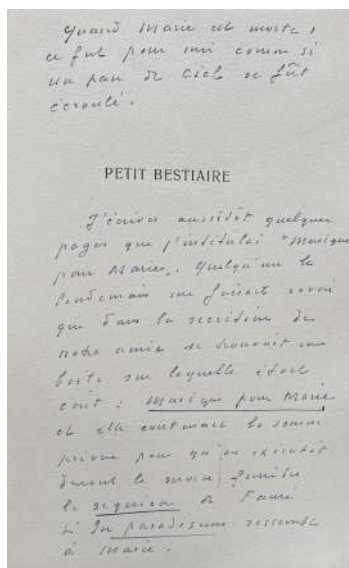 Quand Marie est morte,
ce fut pour moi comme si
un pan de ciel se fût
écroulé.
PETIT BESTIAIRE
J'écrivis aussitôt quelques
pages que j'intitulai "Musique
pour Marie". Quelqu'un le
lendemain me faisait savoir
que dans le secrétaire de
notre amie se trouvait une
boîte sur laquelle était
écrit : Musique pour Marie
et elle contenait la somme
prévue pour qu'on exécutât
durant la messe funèbre
le requiem de Fauré
L'In paradisum ressemble
à Marie.